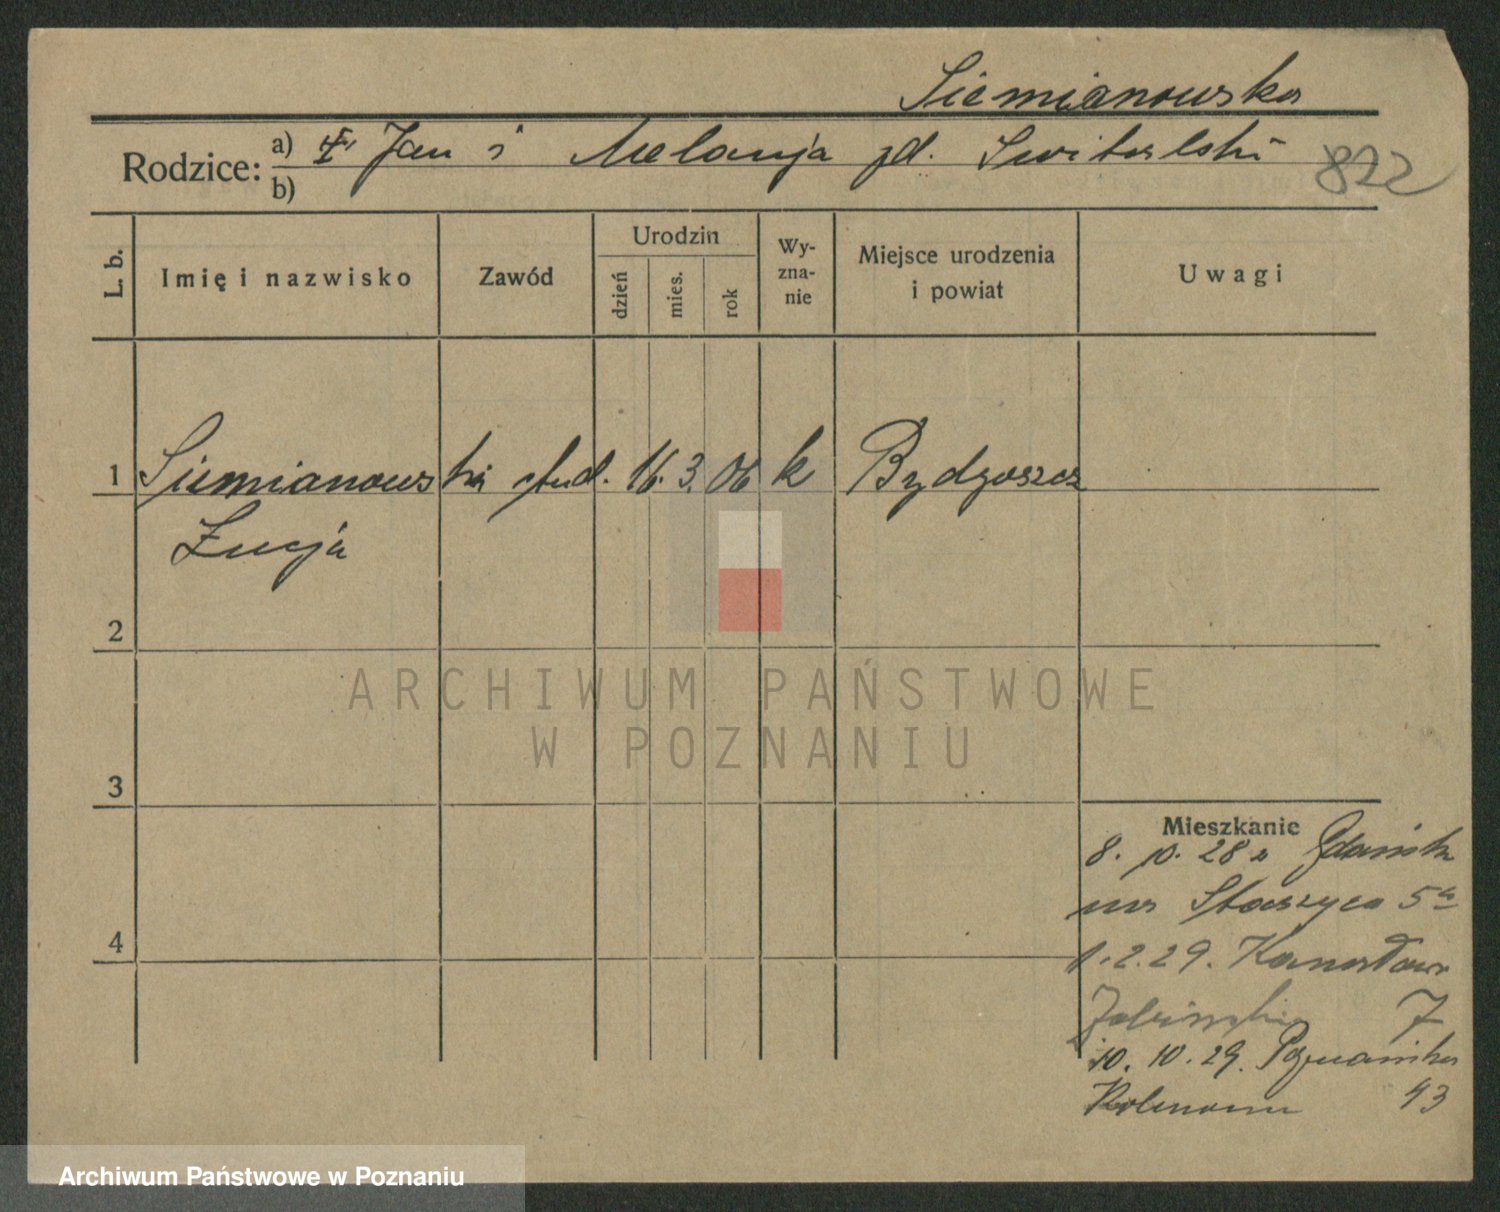 Siemianowska
Rodzice: a) Jan i Melanja zd. Switalski
b)
822
L. b.
Imię i nazwisko
Zawód
Urodzin
dzień
mies.
rok
Wy-
zna-
nie
Miejsce urodzenia
i powiat
Uwagi
1 Siemianowska stud. 16. 3. 06 k Bydgoszcz
Łucja
2
3
4
Mieszkanie
8. 10. 28 z Gdańsk
Staszyca 5a
1. 2. 29. Kanałowa
7
10. 10. 29. Poznańska
43
ARCHIWUM PAŃSTWOWE
W POZNANIU
Archiwum Państwowe w Poznaniu